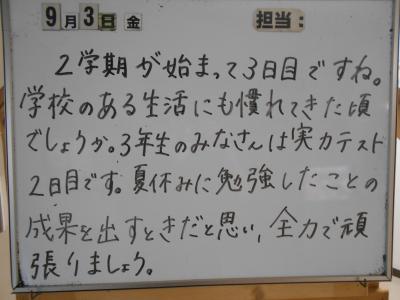 9月3日金 担当:
2学期が始まって3日目ですね。
学校のある生活にも慣れてきた頃
でしょうか。3年生のみなさんは実力テスト
2日目です。夏休みに勉強したことの
成果を出すときだと思い、全力で頑
張りましょう。